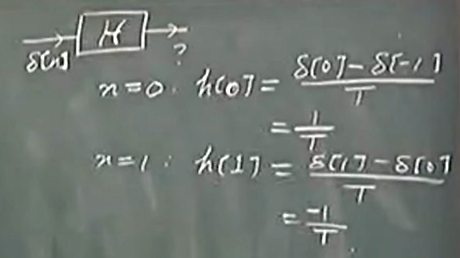 H
δ[n]
?
n=0: h[0] = δ[0] - δ[-1] / T
= 1/T
n=1: h[1] = δ[1] - δ[0] / T
= -1/T